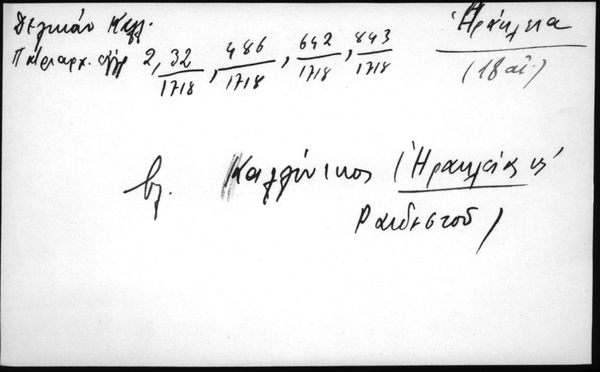 Δελικάν Καλλ.
Πατριαρχ. έγγρ 2, 32/1718, 486/1718, 642/1718, 843/1718
Ἡράκλεια
(18 αἰ.)
βλ. Καλλίνικος (Ἡρακλείας κ'
Ραιδεστοῦ)